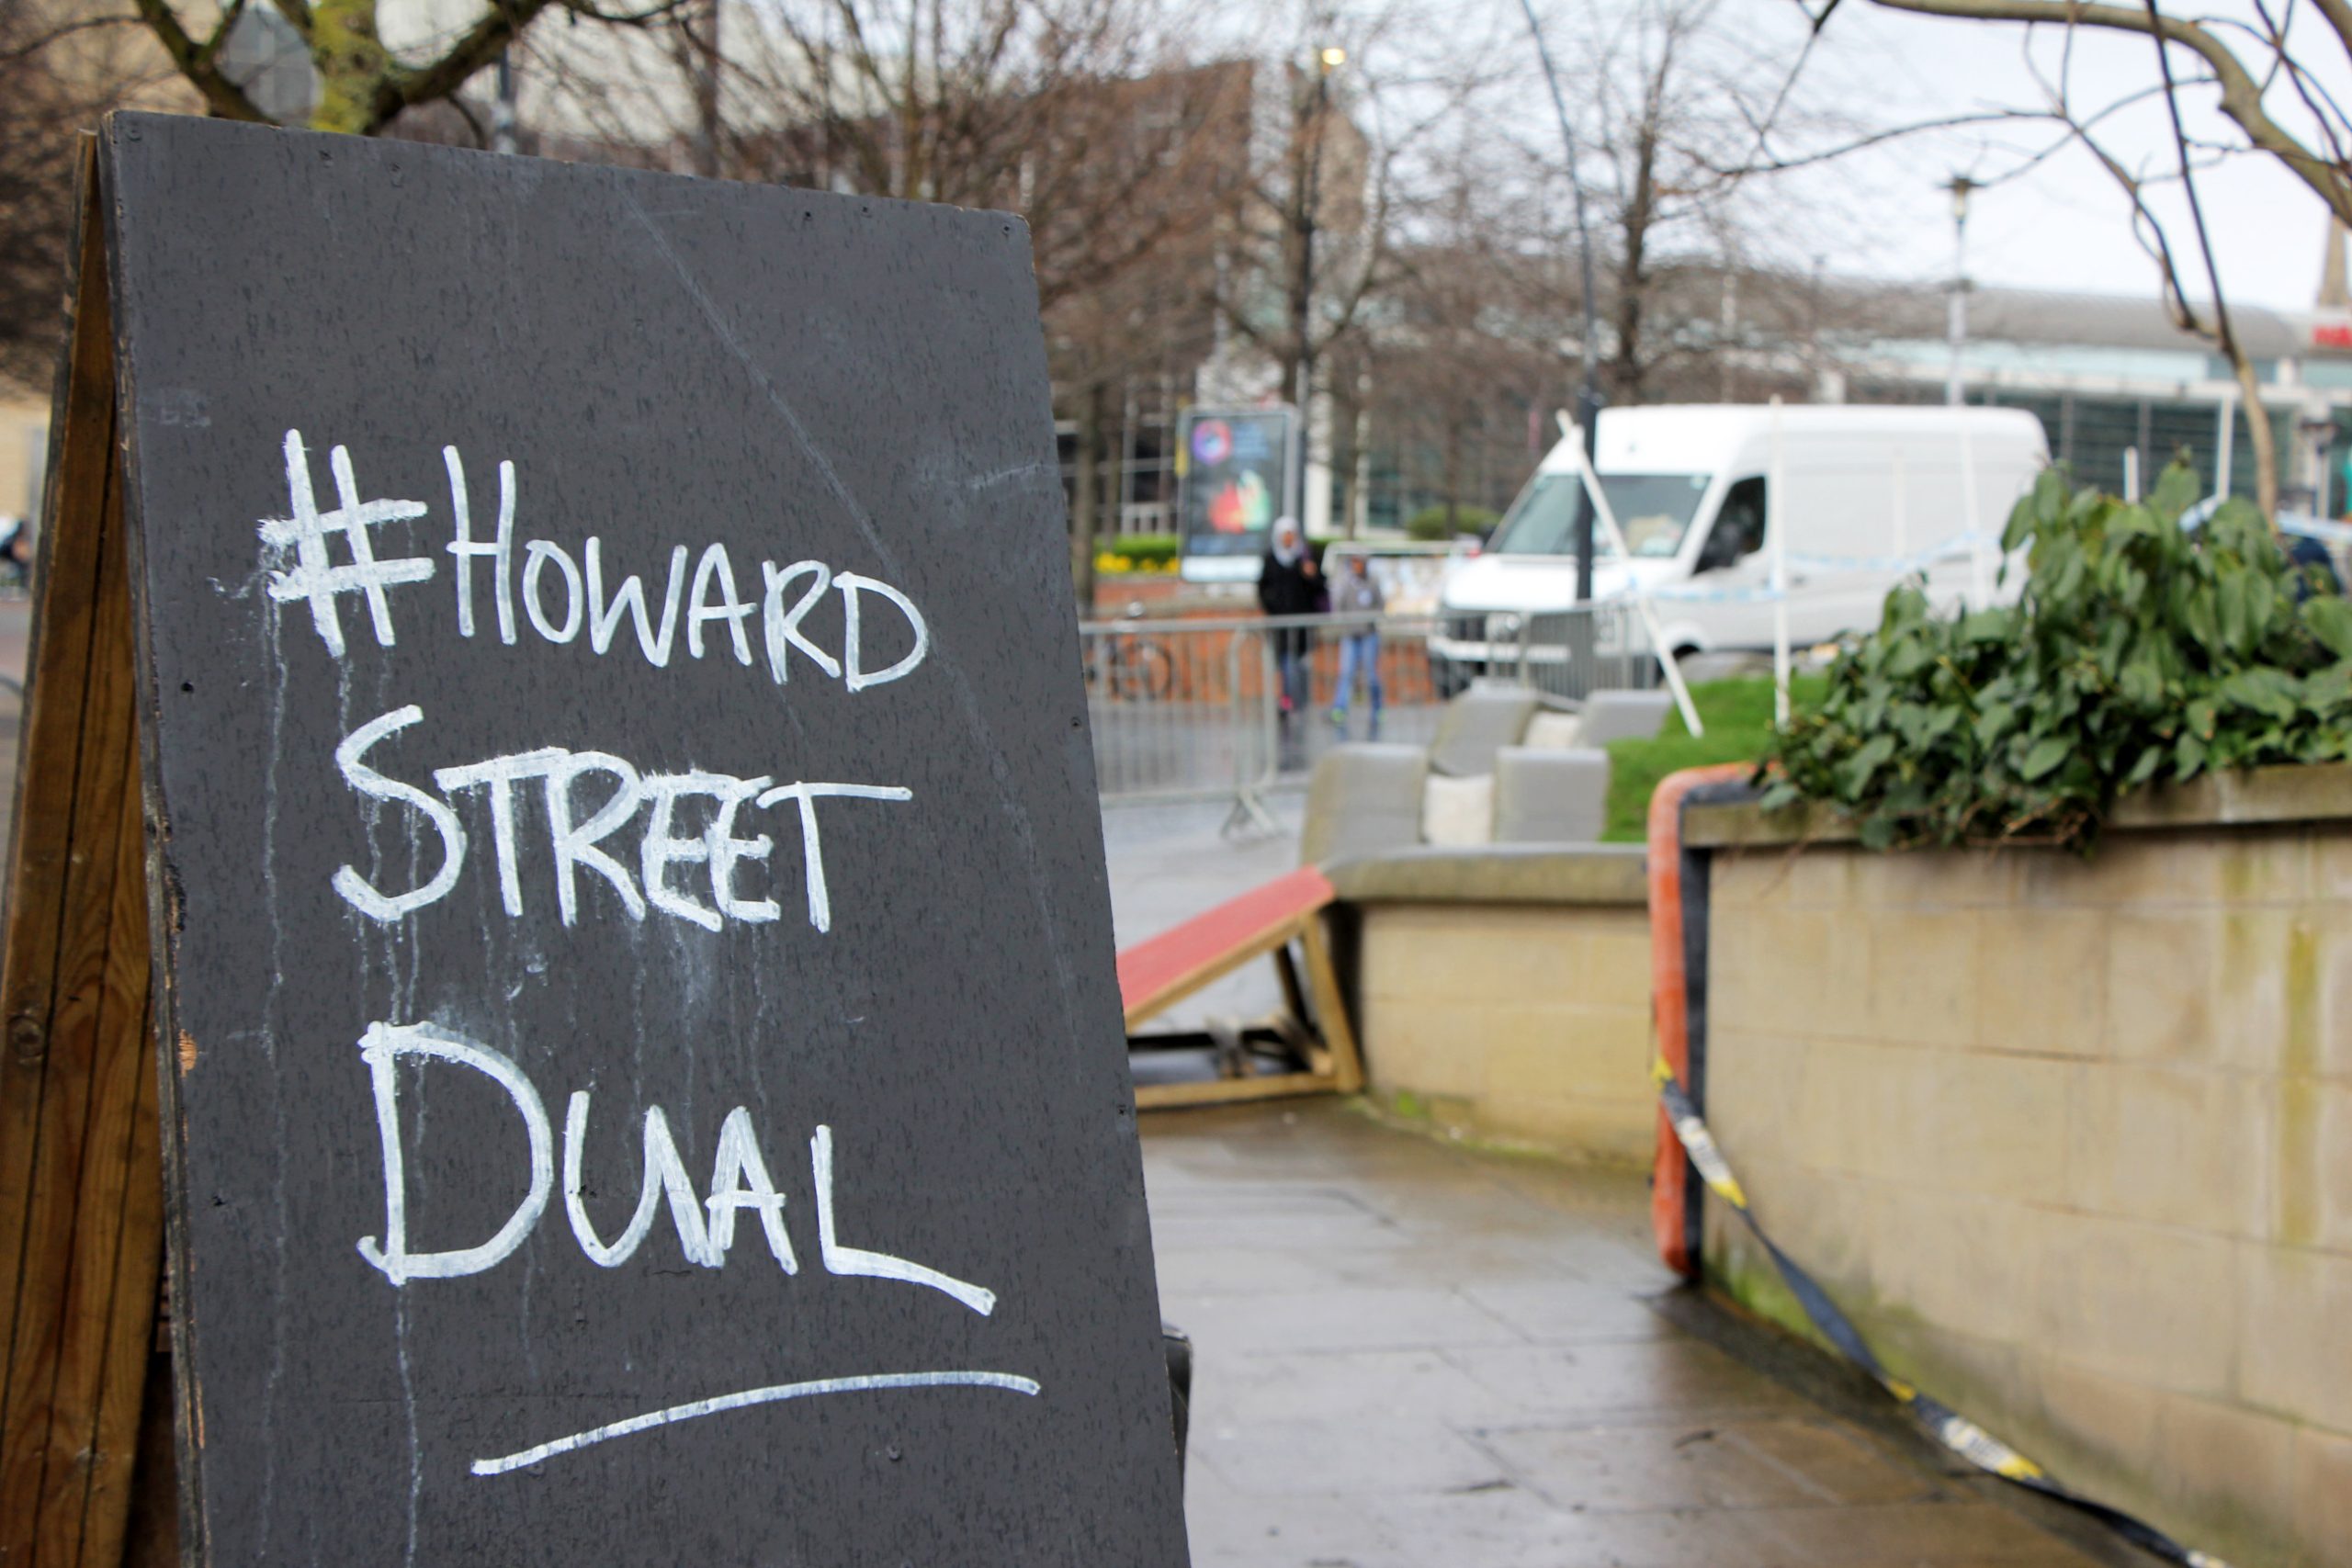 #HOWARD
STREET
DUAL